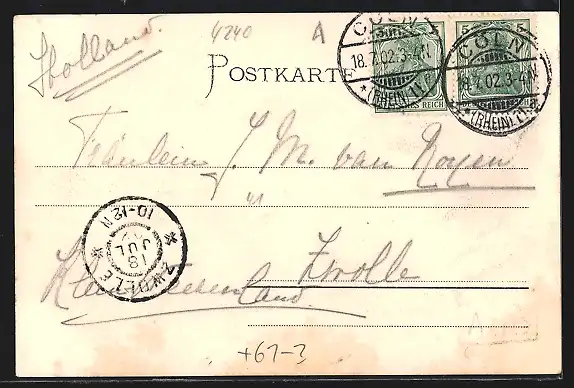 Holland.
4240 A
POSTKARTE
5 5
CÖLN
18.7.02.3-4N.
*(RHEIN)1l*
REICH
CÖLN
18.7.02.3-4N.
*(RHEIN)1l*
Fräulein J. M. van Royen
in
ZWOLLE
18 JUL 02
10-12N
Zwolle
+61-3